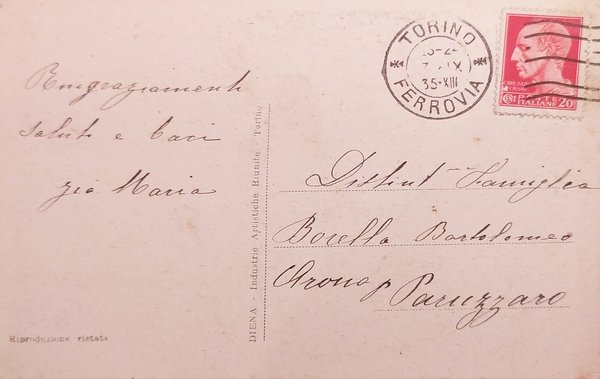 Ringraziamenti
saluti e baci
zia Maria
Riproduzione vietata
DIENA - Industrie Artistiche Riunite - Torino
TORINO
35-XIII
FERROVIA
POSTE
ITALIANE 20
CENT
Distint Famiglia
Borella Bartolomeo
Arona p Paruzzaro